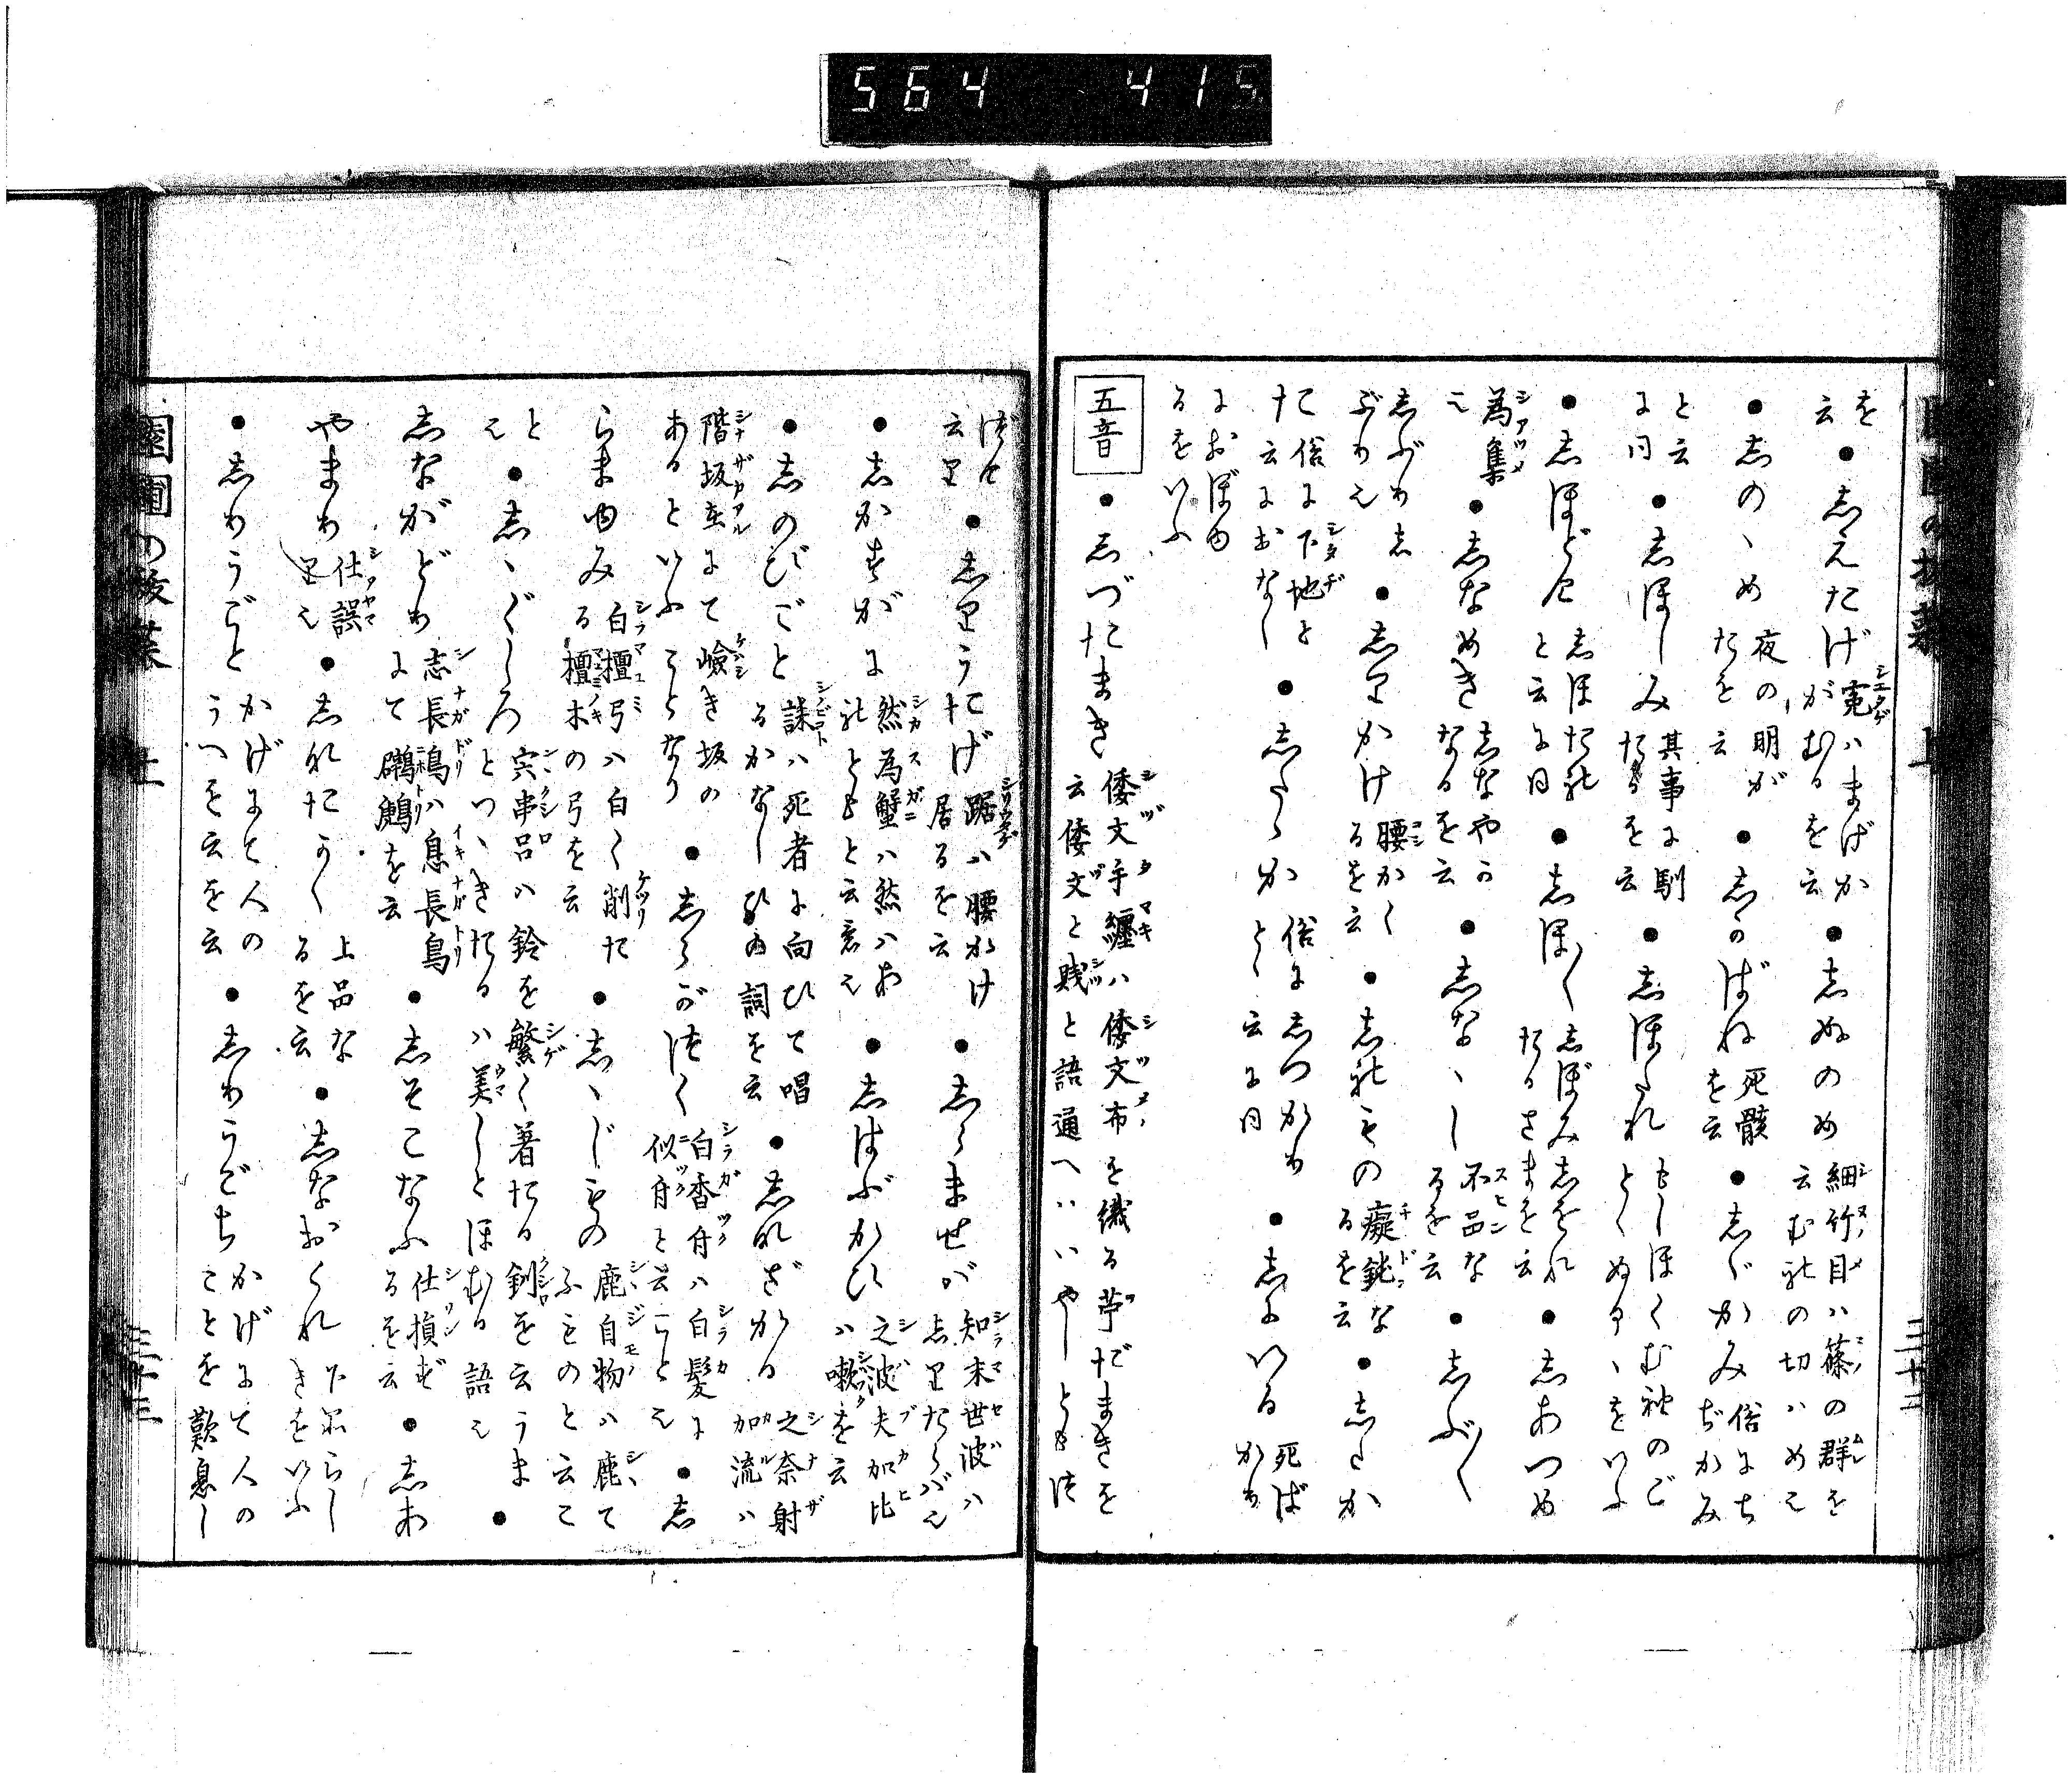 564 415
を云●志えたげ 寃ハまげかがむるを云●志ぬのめ 細竹目ハ篠の群を云む礼の切ハめえ
●志のゝめ 夜の明がたを云●志のばね 死骸を云●志ゞかみ 俗にちぢかみ
と云に同●志ほしみ 其事に馴たるを云●志ほたれ もしほくむ袖のごとくぬるゝをいふ
●志ほどけ 志ほたれと云に同●志ほ〱 志ぼみ志をれたるさまを云●志あつめ
為集え●志なめき 志なやかなるを云●志なゝし 不品なるを云●志ぶ〱
志ぶり志ぶりえ●志りかけ 腰かくるを云●志れもの 癡鈍なるを云●志たか
て俗に下地と云におなし●志たゝかと 俗に志つかりと云に同●志にいる 死ばかり
におぼゆるをいふ
五音●志づたまき 倭文手纏ハ倭文布を織る苧だまきを云倭文と賤と語通へハいやしとも津
づけ云り●志りうたげ 踞ハ腰かけ居るを云●志らませが 知末世波ハ志りたらバえ
●志かすがに 然為蟹ハ然ハあれどもと云意え●志はぶかひ 之波夫加比ハ嗽を云
●志のびごと 誄ハ死者に向ひて唱るかなしひの詞を云●志なざかる 之奈射加流ハ
階坂在にて嶮き坂のあるといふことなり●志らがつく 白香付ハ白髪に似付と云ことえ●志
らまゆみ 白檀弓ハ白く削たる檀木の弓を云●志ゝじもの 鹿自物ハ鹿てふものと云こ
とえ●志ゝぐしろ 宍串呂ハ鈴を繁く著たる釧を云うまとつゝきたるハ美しとほむる語え●
志ながどり 志長鳥ハ息長鳥にて鸊鷉を云●志そこなふ 仕損ずるを云●志あ
やまり 仕誤りえ●志なたかく 上品なるを云●志なおくれ 下品らしきをいふ
●志りうごと かげにて人のうへを云を云●志りうごち かげにて人のことを歎息し
園圃の莢 上 三十三